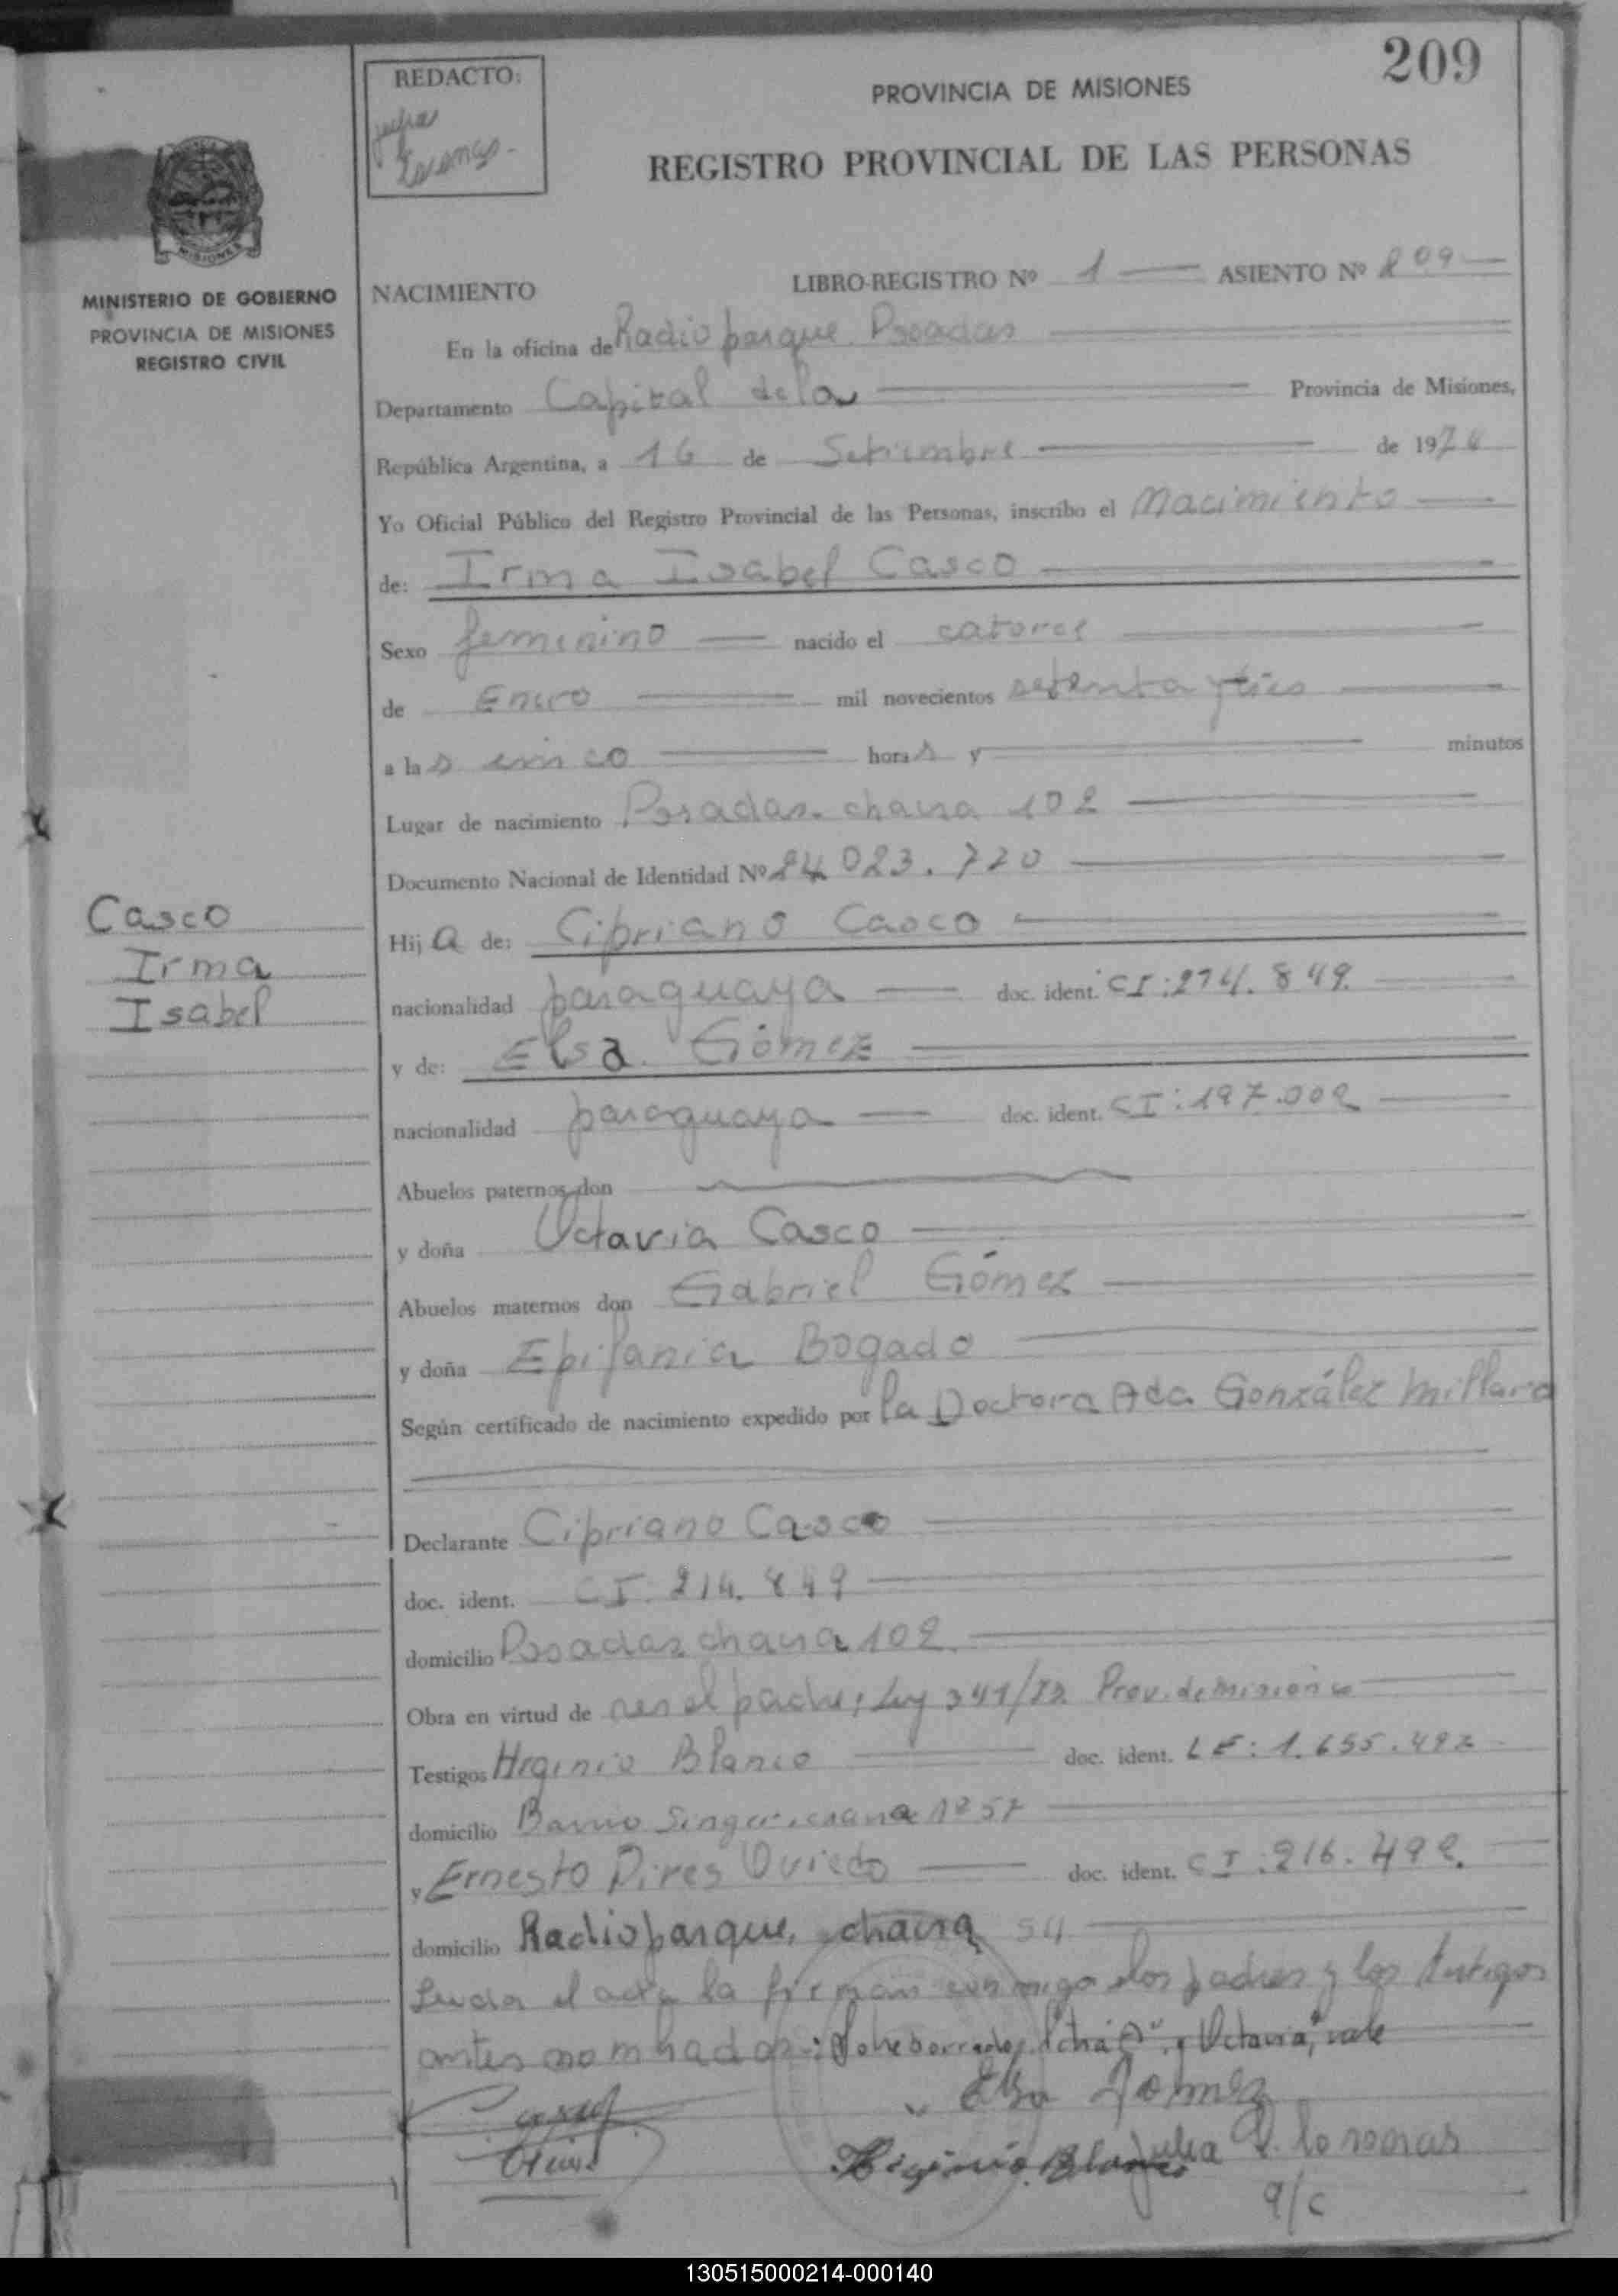 209
REDACTO:
PROVINCIA DE MISIONES
REGISTRO PROVINCIAL DE LAS PERSONAS
MISIONES
MINISTERIO DE GOBIERNO
PROVINCIA DE MISIONES
REGISTRO CIVIL
NACIMIENTO LIBRO-REGISTRO Nº 1 ASIENTO Nº 209
En la oficina de Radioparque Posadas
Departamento Capital de la Provincia de Misiones,
República Argentina, a 16 de Setiembre de 1974
Yo Oficial Público del Registro Provincial de las Personas, inscribo el Nacimiento
de: Irma Isabel Casco
Sexo femenino nacido el catorce
de Enero mil novecientos setenta y tres
a las cinco horas y minutos
Lugar de nacimiento Posadas. chacra 102
Documento Nacional de Identidad Nº 24.023.720
Casco
Irma
Isabel
Hija de: Cipriano Casco
nacionalidad paraguaya doc. ident. CI: 214.849.
y de: Elsa Gómez
nacionalidad paraguaya doc. ident. CI: 197.002
Abuelos paternos don
y doña Octavia Casco
Abuelos maternos don Gabriel Gómez
y doña Epifania Bogado
Según certificado de nacimiento expedido por la Doctora Ada González Millard
Declarante Cipriano Casco
doc. ident. CI. 214.849
domicilio Posadas chacra 102.
Obra en virtud de ser el padre; Ley 341/73. Prov. de misiones
Testigos Higinio Blanco doc. ident. LE: 1.655.492
domicilio Barrio Singer. chacra Nº 57
y Ernesto Pires Oviedo doc. ident. CI: 216.492.
domicilio Radioparque, chacra 54
Leida el acta la firman conmigo los padres y los testigos
antes nombrados: Sobre borrado: y Octavia, vale
Elsa Gomez
Higinio Blanco Julia
a/c
130515000214-000140